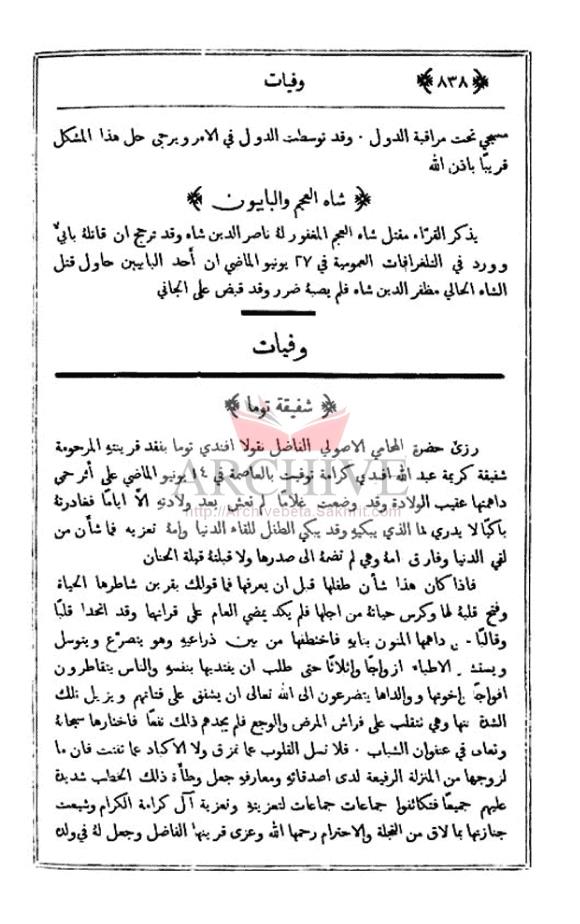 ﴿ ٨٣٨ ﴾ وفيات
مسيحي تحت مراقبة الدول . وقد توسطت الدول في الامر ويرجى حل هذا المشكل
قريبًا باذن الله
﴿ شاه العجم والبابيون ﴾
يذكر القرّاء مقتل شاه العجم المغفور لهُ ناصر الدين شاه وقد ترجح ان قاتلهُ بابيٌّ
وورد في التلغرافات العمومية في ٢٧ يونيو الماضي ان أحد البابيين حاول قتل
الشاه الحالي مظفر الدين شاه فلم يصبهُ ضرر وقد قبض على الجاني
وفيات
﴿ شفيقة توما ﴾
رزئ حضرة المحامي الاصولي الفاضل نقولا افندي توما بفقد قرينتهِ المرحومة
شفيقة كريمة عبد الله افندي كرامة توفيت بالعاصمة في ١٤ يونيو الماضي على أثر حمى
داهمتها عقيب الولادة وقد وضعت غلامًا لم تعش بعد ولادتهِ الّا ايامًا فغادرتهُ
باكيًا لا يدري لما الذي يبكيهِ وقد يبكي الطفل للقاء الدنيا وامهُ تعزيه فما شأن من
لقي الدنيا وفارق امهُ وهي لم تضمهُ الى صدرها ولا قبلتهُ قبلة الحنان
فاذا كان هذا شأن طفلها قبل ان يعرفها فما قولك بقرين شاطرها الحياة
وفتح قلبهُ لها وكرس حياتهُ من اجلها فلم يكد يمضي العام على قرانهما وقد اتحدا قلبًا
وقالبًا داهمها المنون بنابهِ فاختطفها من بين ذراعيهِ وهو يتضرّع ويتوسل
الاطباء ازواجًا واثلاثًا حتى طلب ان يفتديها بنفسهِ والناس يتقاطرون
افواجًا وإخوتها ووالداها يتضرعون الى الله تعالى ان يشفق على فتاتهم ويزيل تلك
الشدة عنها وهي تتقلب على فراش المرض والوجع فلم يجدهم ذلك نفعًا فاختارها سبحانهُ
وتعالى في عنفوان الشباب . فلا تسل القلوب عما تمزق ولا الاكباد عما تفتت فان ما
لزوجها من المنزلة الرفيعة لدى اصدقائهِ ومعارفهِ جعل وطأة ذلك الخطب شديدة
عليهم جميعًا فتكاثفوا جماعات جماعات لتعزيتهِ وتعزية آل كرامة الكرام وشيعت
جنازتها بما لاق من التجلة والاحترام رحمها الله وعزى قرينها الفاضل وجعل لهُ في ولده
ARCHIVE
http://Archivebeta.Sakhrit.com